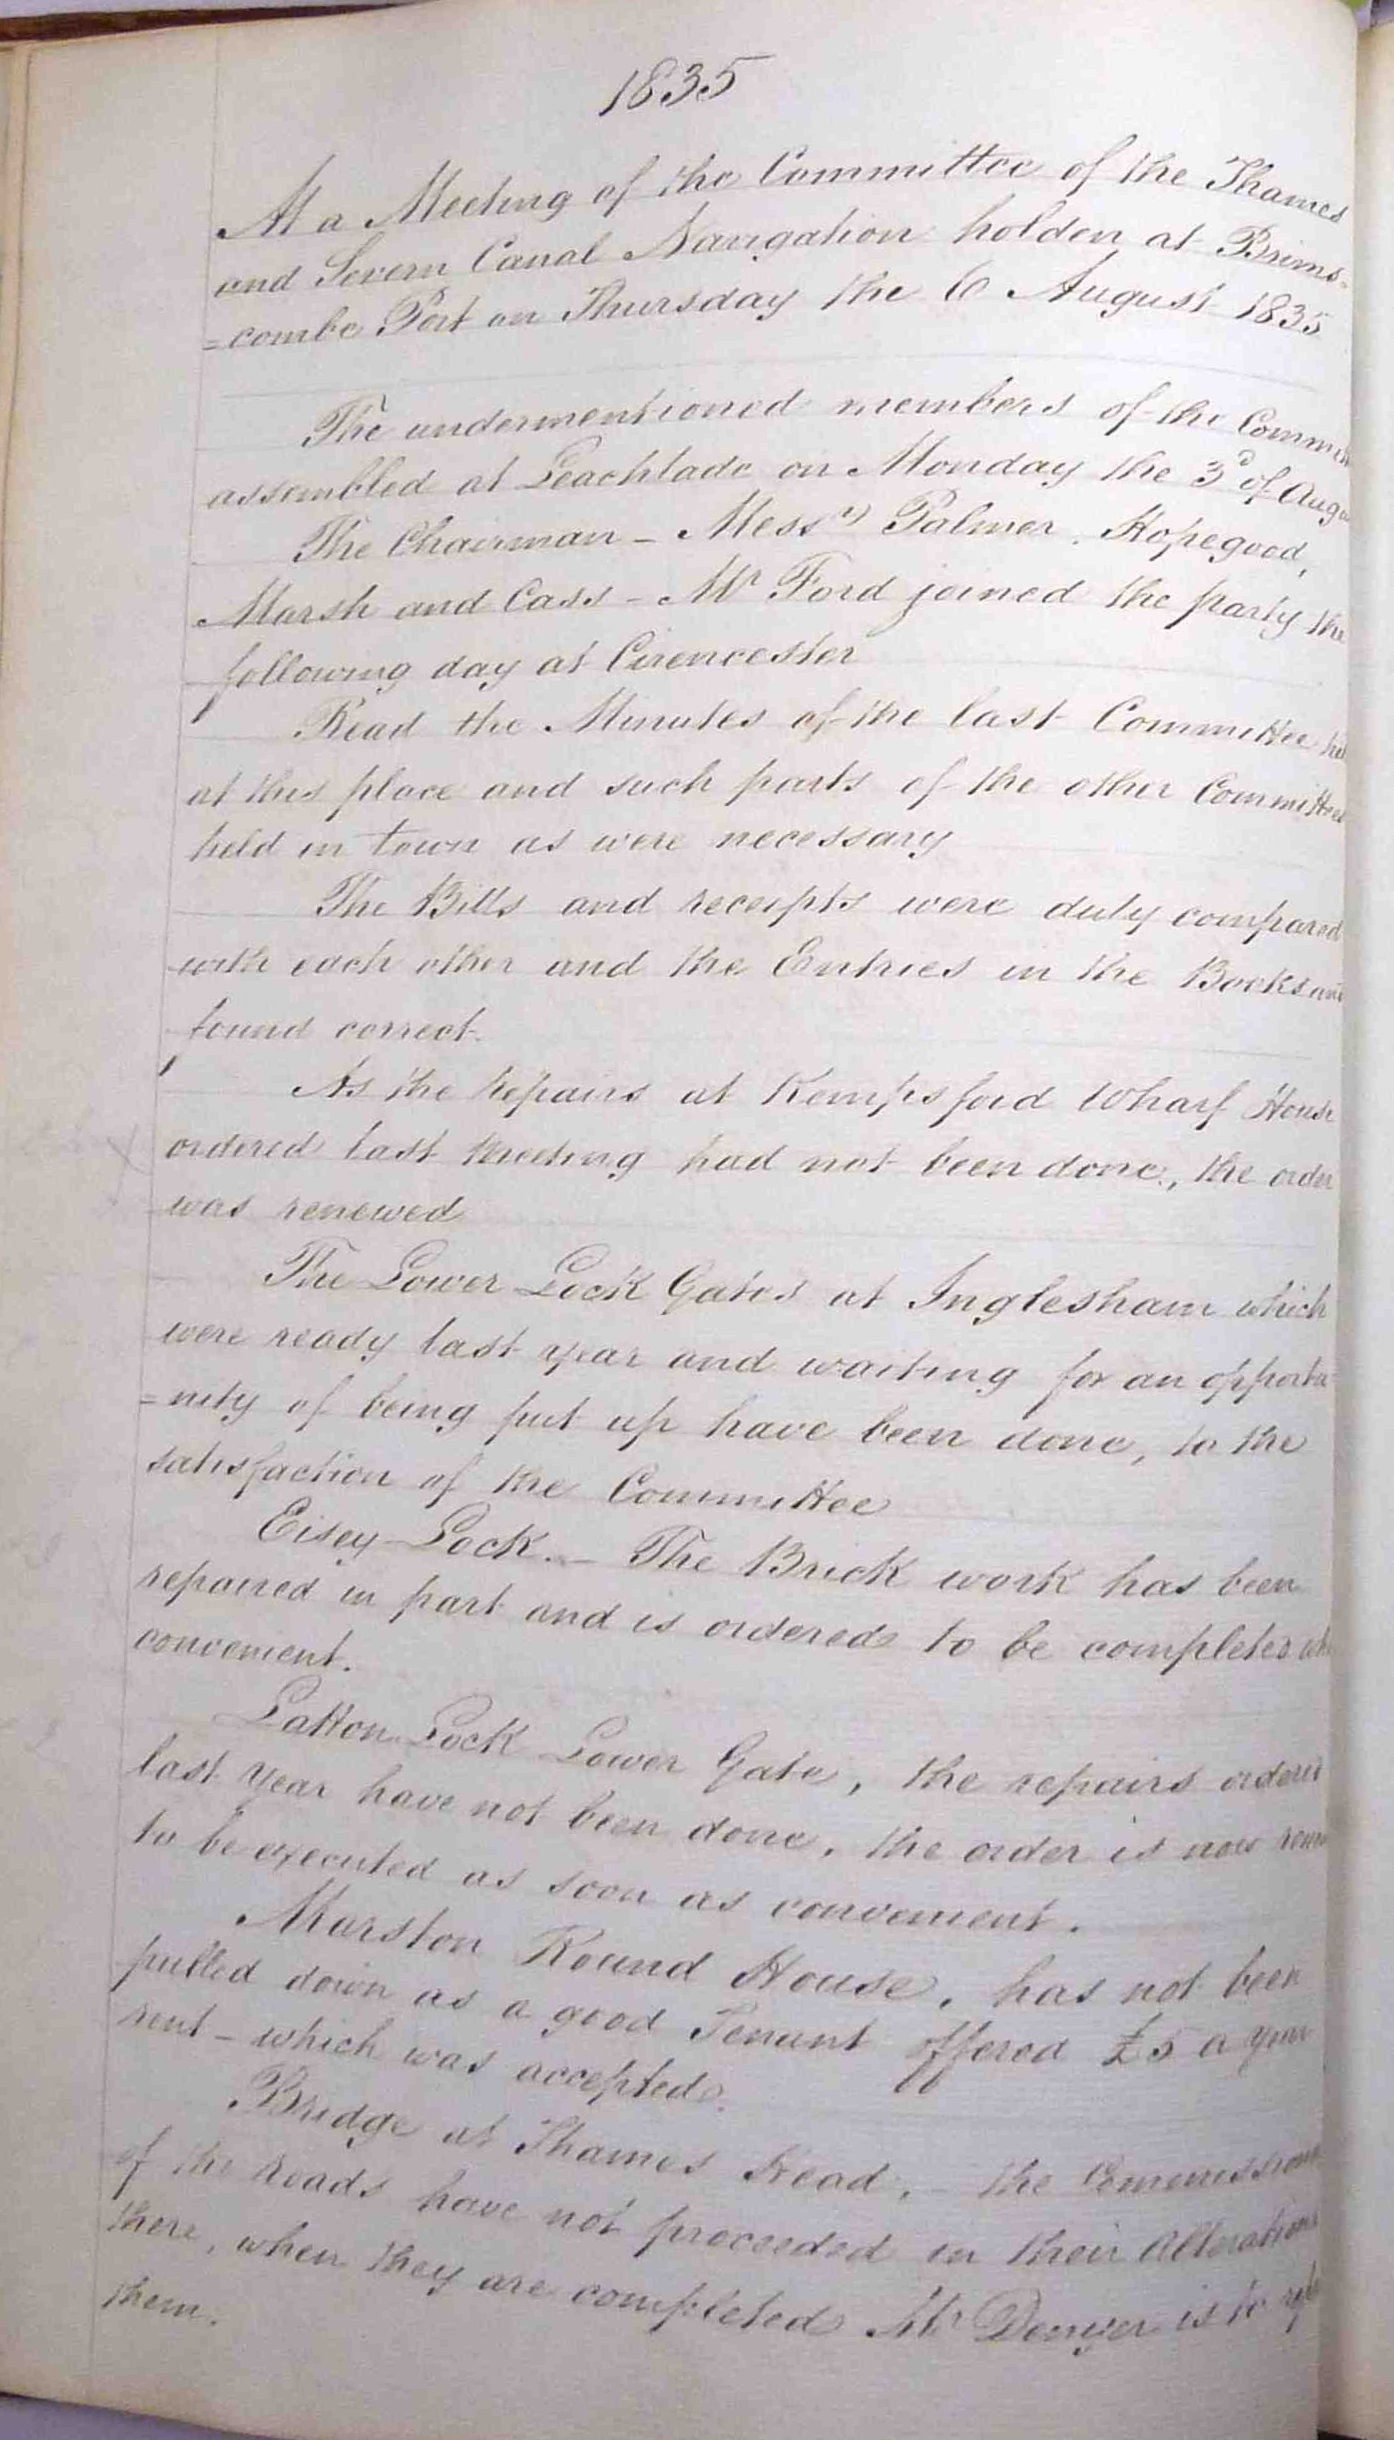 1835
At a Meeting of the Committee of the Thames
and Severn Canal Navigation holden at Brims=
=combe Port on Thursday the 6 August 1835
The undermentioned members of the Commit
assembled at Leachlade on Monday the 3d of Augu
The Chairman – Messrs Palmer, Hopegood,
Marsh and Cass – Mr Ford joined the party the
following day at Cirencester
Read the Minutes of the last Committee hel
at this place and such parts of the other Committees
held in town as were necessary
The Bills and receipts were duly compared
with each other and the Entries in the Books and
found correct.
As the Repairs at Kempsford Wharf House
ordered last Meeting had not been done, the order
was renewed
The Lower Lock Gates at Inglesham which
were ready last year and waiting for an opportu
=nity of being put up have been done, to the
satisfaction of the Committee
Eisey Lock. – The Brick work has been
repaired in part and is ordered to be completed wh
convenient.
Latton Lock Lower Gate, the repairs ordered
last year have not been done, the order is now
to be executed as soon as convenient.
Marston Round House, has not been
pulled down as a good Tenant offered £5 a year
rent – which was accepted.
Bridge at Thames Head, – the Commissione
of the Roads have not proceeded in their Alterations
there, when they are completed Mr Denyer is to
them.